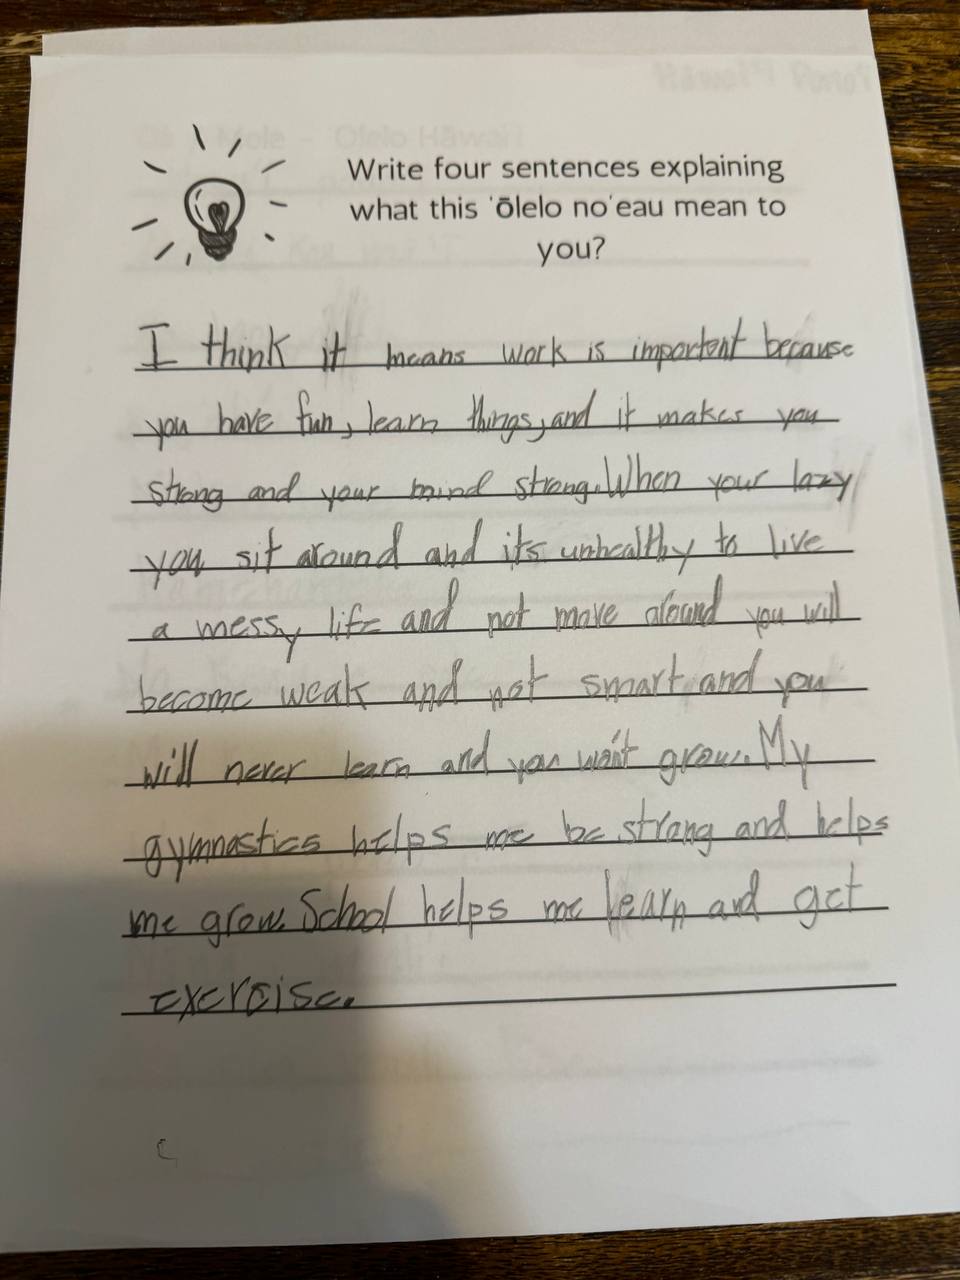 Write four sentences explaining
what this 'ōlelo no'eau mean to
you?
I think it means work is important because
you have fun, learn things, and it makes you
strong and your mind strong. When your lazy
you sit around and its unhealthy to live
a messy life and not move around you will
become weak and not smart, and you
will never learn and you won't grow. My
gymnastics helps me be strong and helps
me grow. School helps me learn and get
exercise.